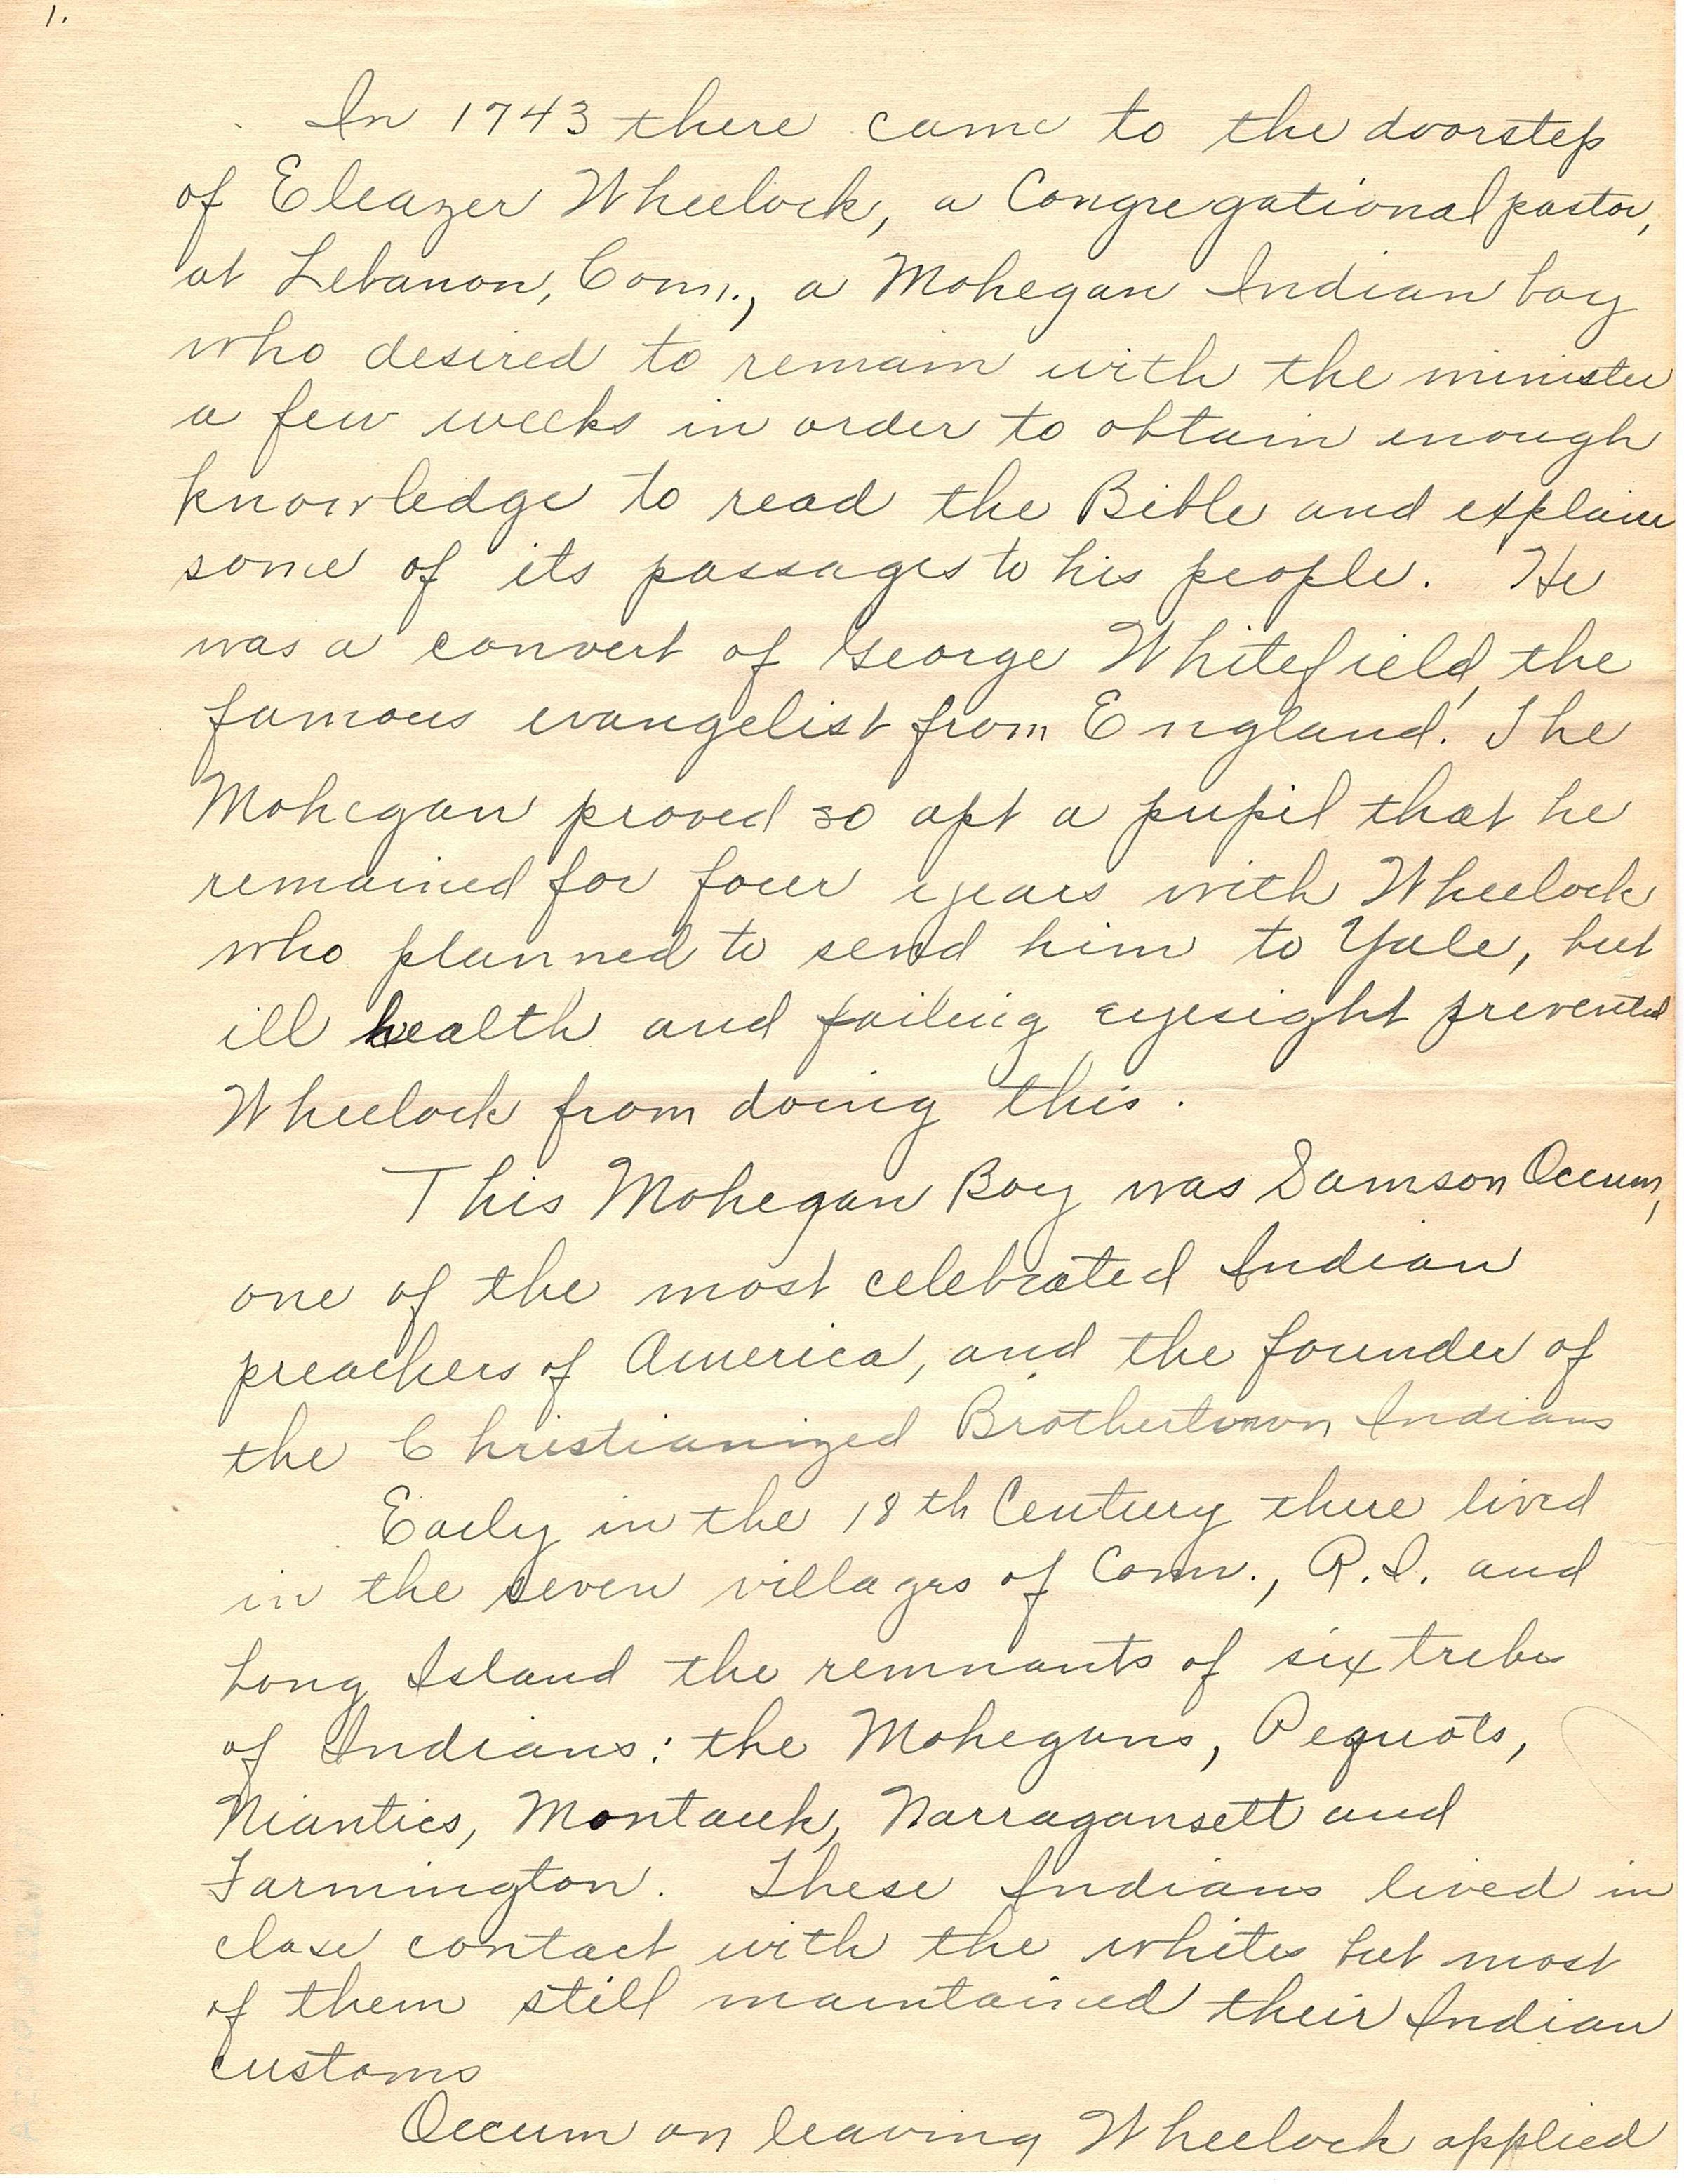 1.
In 1743 there came to the doorstep
of Eleazer Wheelock, a Congregational pastor,
at Lebanon, Conn., a Mohegan Indian boy
who desired to remain with the minister
a few weeks in order to obtain enough
knowledge to read the Bible and explain
some of its passages to his people. He
was a convert of George Whitefield, the
famous evangelist from England. The
Mohegan proved so apt a pupil that he
remained for four years with Wheelock
who planned to send him to Yale, but
ill health and failing eyesight prevented
Wheelock from doing this.
This Mohegan Boy was Samson Occum,
one of the most celebrated Indian
preachers of America, and the founder of
the Christianized Brothertown Indians
Early in the 18th Century there lived
in the seven villages of Conn., R.I. and
Long Island the remnants of six tribes
of Indians: the Mohegans, Pequots,
Niantics, Montauk, Narragansett and
Farmington. These Indians lived in
close contact with the whites but most
of them still maintained their Indian
customs
Occum on leaving Wheelock applied